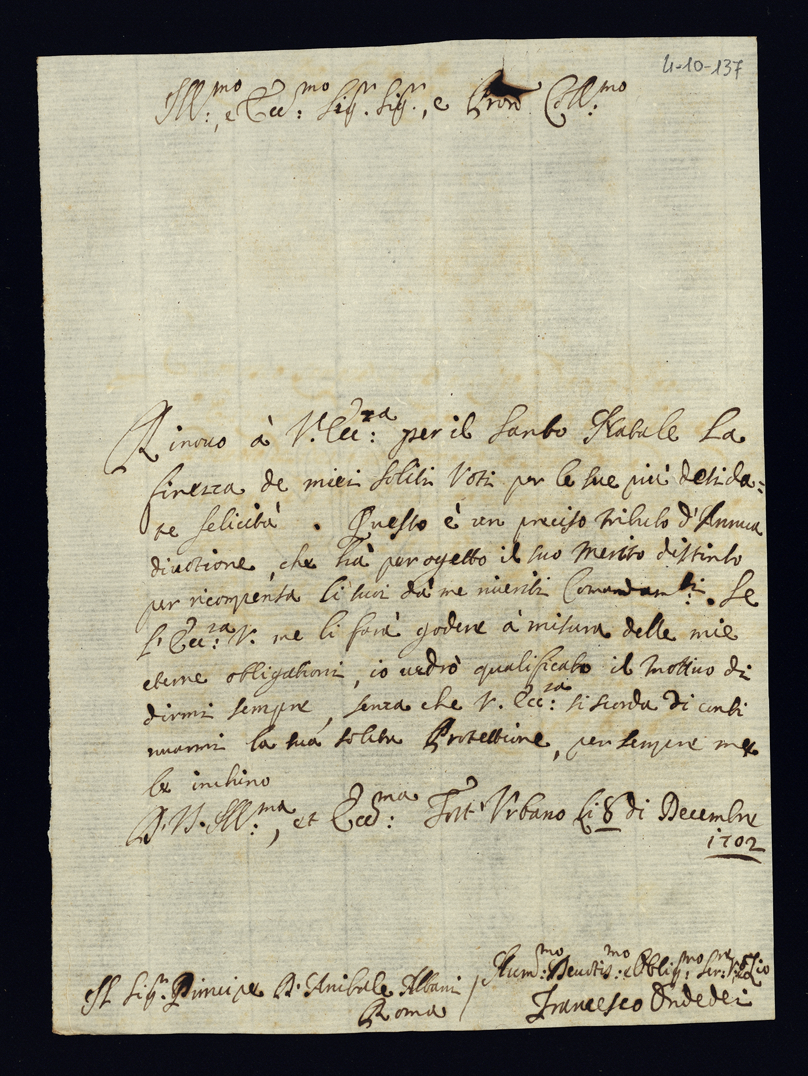 4-10-137
Ill:mo, e Ecc:mo Sig:r Sig:r, e Pron Coll:mo
Rinovo à V. Ecc:za per il Santo Natale La
finezza de miei soliti Voti per le sue più deside=
te felicità. Questo è un preciso tributo d'Annua
divotione, che hà per ogetto il suo Merito distinto
per ricompensa li suoi da me riveriti Comandam:ti. Se
l'Ecc:za V. me li farà godere à misura delle mie
eterne obligationi, io vedrò qualificato il Mottivo di
dirmi sempre, senza che V. Ecc:za si scorda di conti
nuarmi la sua solita Protettione, per sempre me
le inchino
D. V. Ill:ma, et Ecc:ma Fort Urbano li 8 di Decembre
1702
Il Sig:r Principe D. Anibale Albani
Roma
Hum:mo Devotis:mo e Oblig:mo Ser:re
Francesco Ondedei